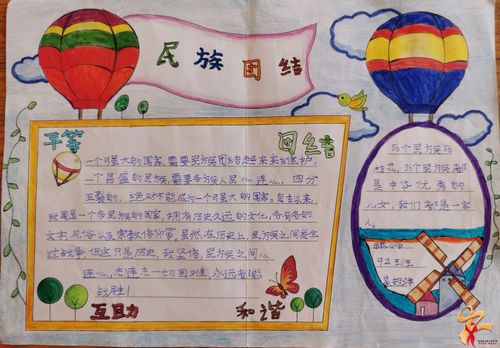 民族团结
平等
团结
一个强大的国家,需要民族团结起来来维护,
一个昌盛的民族,需要各族人民心连心。四分
五裂的,绝对不能成为一个强大的国家,自古以来,
我国是一个多民族的国家,拥有历史久远的文化,各有各的
文字、风俗以及宗教信仰等,虽然,在历史上,民族之间发生
过战争,但这只是历史,我坚信,民族之间心
连心,手连手一切困难,永远都能
战胜!
互助
和谐
56个民族56
枝花,56个民族都
是中华优秀的
儿女,我们都是一家
人。
92班